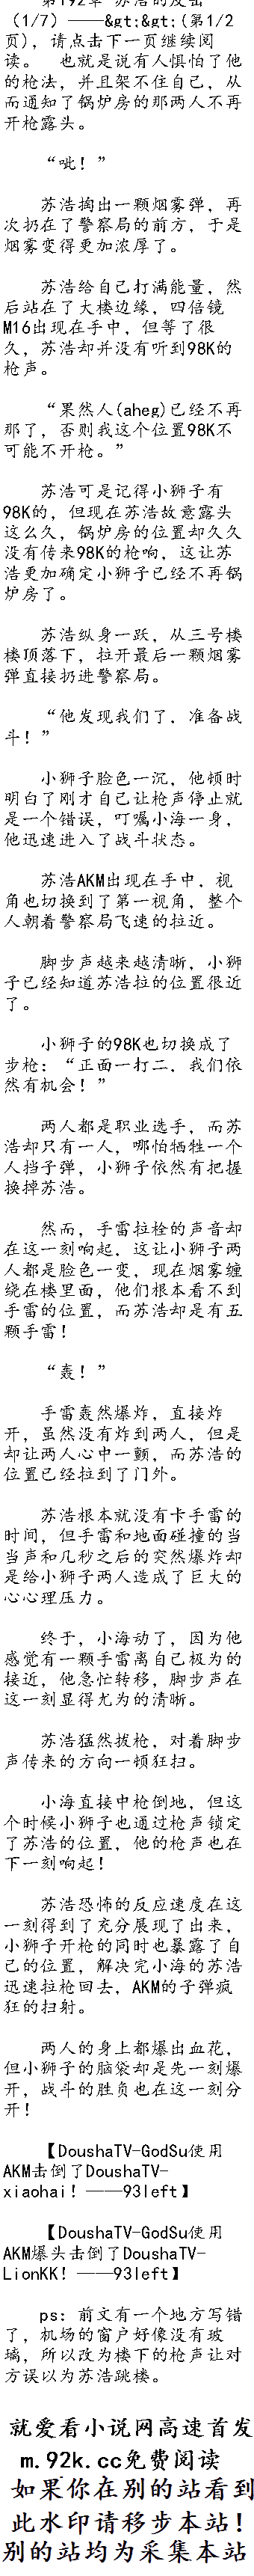 第192章 苏浩的反击
（1/7）——&gt;&gt;(第1/2
页)，请点击下一页继续阅
读。　也就是说有人惧怕了他
的枪法，并且架不住自己，从
而通知了锅炉房的那两人不再
开枪露头。
“呲！”
苏浩掏出一颗烟雾弹，再
次扔在了警察局的前方，于是
烟雾变得更加浓厚了。
苏浩给自己打满能量，然
后站在了大楼边缘，四倍镜
M16出现在手中，但等了很
久，苏浩却并没有听到98K的
枪声。
“果然人(aheg)已经不再
那了，否则我这个位置98K不
可能不开枪。”
苏浩可是记得小狮子有
98K的，但现在苏浩故意露头
这么久，锅炉房的位置却久久
没有传来98K的枪响，这让苏
浩更加确定小狮子已经不再锅
炉房了。
苏浩纵身一跃，从三号楼
楼顶落下，拉开最后一颗烟雾
弹直接扔进警察局。
“他发现我们了，准备战
斗！”
小狮子脸色一沉，他顿时
明白了刚才自己让枪声停止就
是一个错误，叮嘱小海一身，
他迅速进入了战斗状态。
苏浩AKM出现在手中，视
角也切换到了第一视角，整个
人朝着警察局飞速的拉近。
脚步声越来越清晰，小狮
子已经知道苏浩拉的位置很近
了。
小狮子的98K也切换成了
步枪：“正面一打二，我们依
然有机会！”
两人都是职业选手，而苏
浩却只有一人，哪怕牺牲一个
人挡子弹，小狮子依然有把握
换掉苏浩。
然而，手雷拉栓的声音却
在这一刻响起，这让小狮子两
人都是脸色一变，现在烟雾缠
绕在楼里面，他们根本看不到
手雷的位置，而苏浩却是有五
颗手雷！
“轰！”
手雷轰然爆炸，直接炸
开，虽然没有炸到两人，但是
却让两人心中一颤，而苏浩的
位置已经拉到了门外。
苏浩根本就没有卡手雷的
时间，但手雷和地面碰撞的当
当声和几秒之后的突然爆炸却
是给小狮子两人造成了巨大的
心心理压力。
终于，小海动了，因为他
感觉有一颗手雷离自己极为的
接近，他急忙转移，脚步声在
这一刻显得尤为的清晰。
苏浩猛然拔枪，对着脚步
声传来的方向一顿狂扫。
小海直接中枪倒地，但这
个时候小狮子也通过枪声锁定
了苏浩的位置，他的枪声也在
下一刻响起！
苏浩恐怖的反应速度在这
一刻得到了充分展现了出来，
小狮子开枪的同时也暴露了自
己的位置，解决完小海的苏浩
迅速拉枪回去，AKM的子弹疯
狂的扫射。
两人的身上都爆出血花，
但小狮子的脑袋却是先一刻爆
开，战斗的胜负也在这一刻分
开！
【DoushaTV-GodSu使用
AKM击倒了DoushaTV-
xiaohai！——93left】
【DoushaTV-GodSu使用
AKM爆头击倒了DoushaTV-
LionKK！——93left】
ps：前文有一个地方写错
了，机场的窗户好像没有玻
璃，所以改为楼下的枪声让对
方误以为苏浩跳楼。
就爱看小说网高速首发
m.92k.cc免费阅读
如果你在别的站看到
此水印请移步本站！
别的站均为采集本站